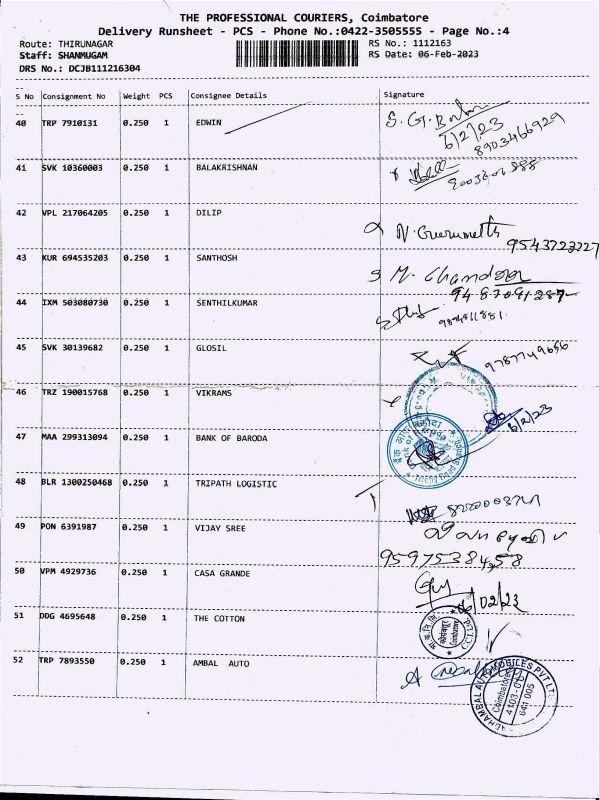 THE PROFESSIONAL COURIERS, Coimbatore
Delivery Runsheet - PCS - Phone No.:0422-3505555 - Page No.:4
Route: THIRUNAGAR RS No.: 1112163
Staff: SHANMUGAM RS Date: 06-Feb-2023
DRS No.: DCJB111216304
S No Consignment No Weight PCS Consignee Details Signature
40 TRP 7910131 0.250 1 EDWIN S. G.
6/2/23
8903466929
41 SVK 10360003 0.250 1 BALAKRISHNAN
42 VPL 217064205 0.250 1 DILIP
9543723227
43 KUR 694535203 0.250 1 SANTHOSH M. Chander
9487091287
44 IXM 503080730 0.250 1 SENTHILKUMAR
45 SVK 30139682 0.250 1 GLOSIL
9787749656
46 TRZ 190015768 0.250 1 VIKRAMS
6/2/23
47 MAA 299313094 0.250 1 BANK OF BARODA
48 BLR 1300250468 0.250 1 TRIPATH LOGISTIC
49 PON 6391987 0.250 1 VIJAY SREE
9597538458
50 VPM 4929736 0.250 1 CASA GRANDE
06/02/23
51 DDG 4695648 0.250 1 THE COTTON
52 TRP 7893550 0.250 1 AMBAL AUTO
Coimbatore
641 005